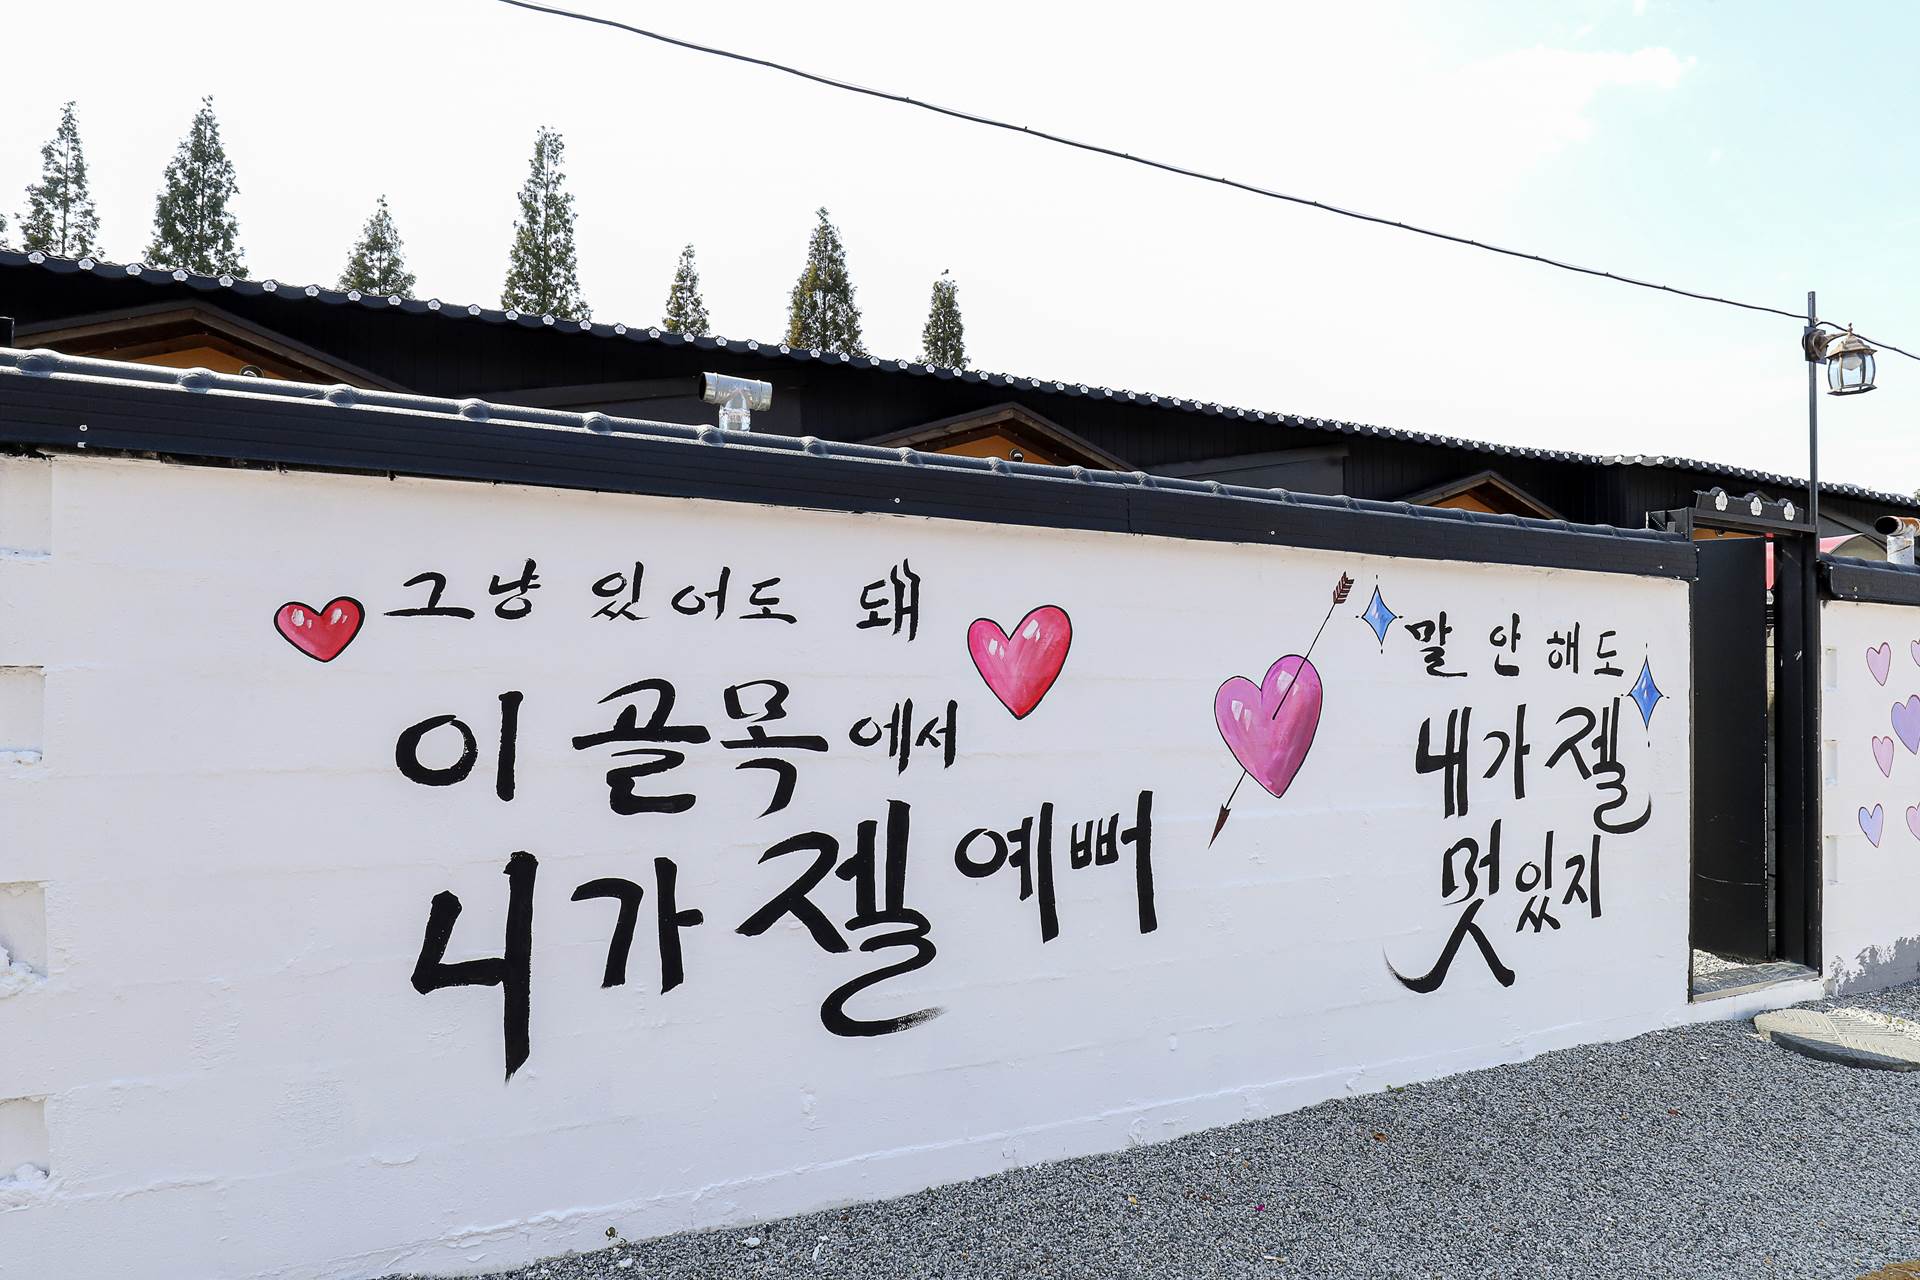 그냥 있어도 돼
이 골목에서
니가 젤 예뻐
말 안 해도
내가 젤
멋있지